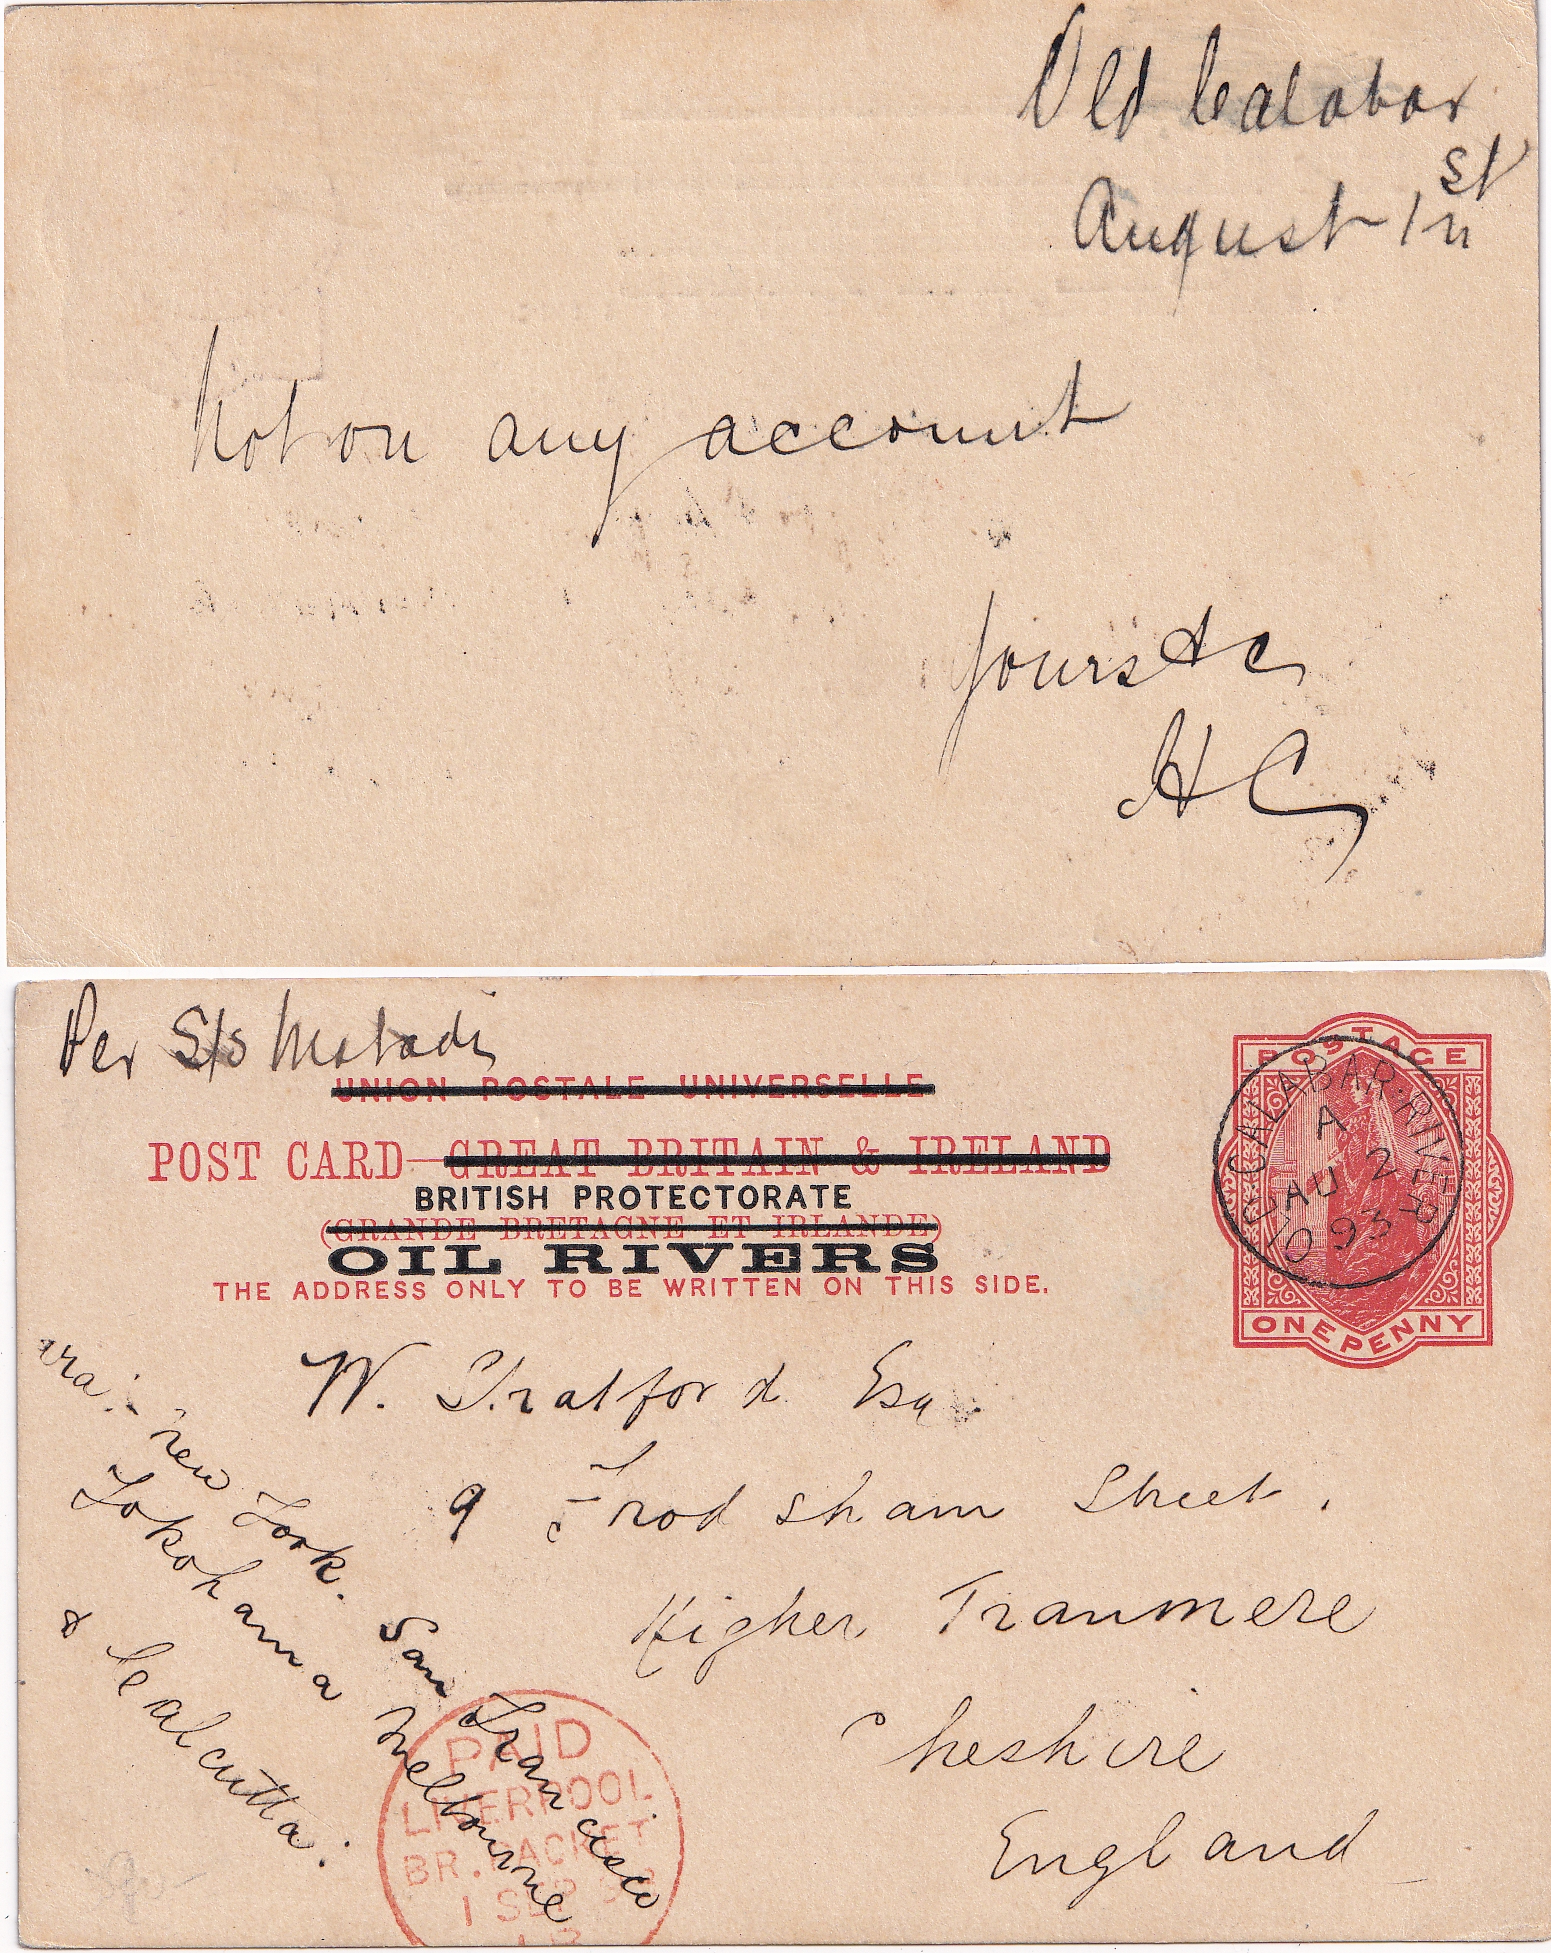 Old Calabar
August 1st
Not on any account
Yours &c
HC
Per S/S Matadi
UNION POSTALE UNIVERSELLE
POST CARD GREAT BRITAIN & IRELAND
BRITISH PROTECTORATE
(GRANDE BRETAGNE ET IRLANDE)
OIL RIVERS
THE ADDRESS ONLY TO BE WRITTEN ON THIS SIDE.
POSTAGE
ONE PENNY
OLD CALABAR·RIVER
A
AU 2
93
W. Stratford Esq
9 Frodsham Street.
Higher Tranmere
Cheshire
England
via: New York. San Francisco
Yokohama Melbourne
& Calcutta.
PAID
LIVERPOOL
BR. PACKET
1 SEP 93